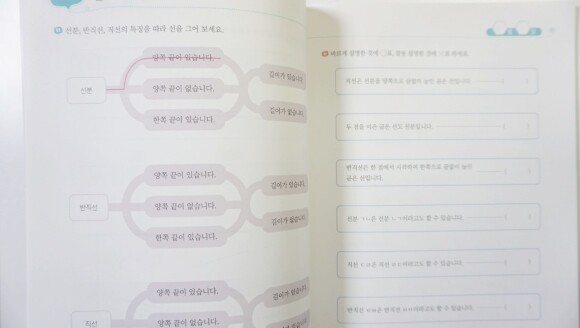 선분, 반직선, 직선의 특징을 따라 선을 그어 보세요.
선분
양쪽 끝이 있습니다.
양쪽 끝이 없습니다.
한쪽 끝이 있습니다.
길이가 있습니다.
길이가 없습니다.
반직선
양쪽 끝이 있습니다.
양쪽 끝이 없습니다.
한쪽 끝이 있습니다.
길이가 있습니다.
길이가 없습니다.
직선
양쪽 끝이 있습니다.
양쪽 끝이 없습니다.
길이가 있습니다.
길이가 없습니다.
바르게 설명한 것에 ○표, 잘못 설명한 것에 ×표 하세요.
직선은 선분을 양쪽으로 끝없이 늘인 곧은 선입니다.
두 점을 이은 굽은 선도 선분입니다.
반직선은 한 점에서 시작하여 한쪽으로 끝없이 늘인
곧은 선입니다.
선분 ㄱㄴ은 선분 ㄴㄱ이라고도 할 수 있습니다.
직선 ㄷㄹ은 직선 ㄹㄷ이라고도 할 수 있습니다.
반직선 ㅁㅂ은 반직선 ㅂㅁ이라고도 할 수 있습니다.